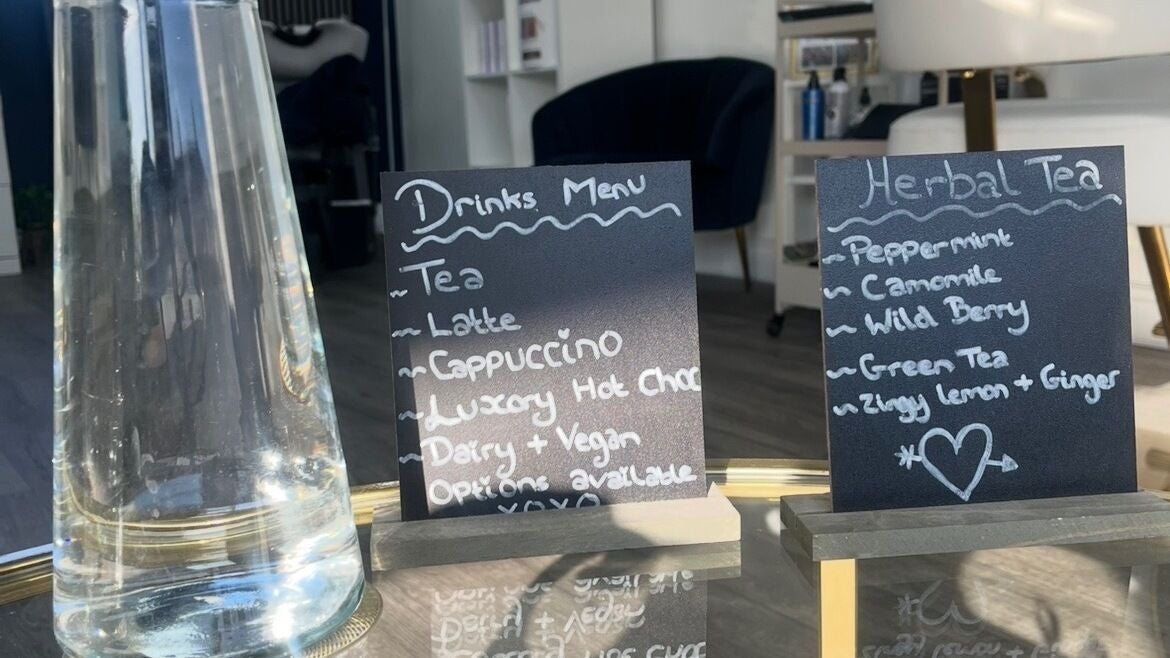 Drinks Menu
~ Tea
~ Latte
~ Cappuccino
~ Luxory Hot Choc
~ Dairy + Vegan
Options available
xoxo
Herbal Tea
~ Peppermint
~ Camomile
~ Wild Berry
~ Green Tea
~ Zingy lemon + Ginger